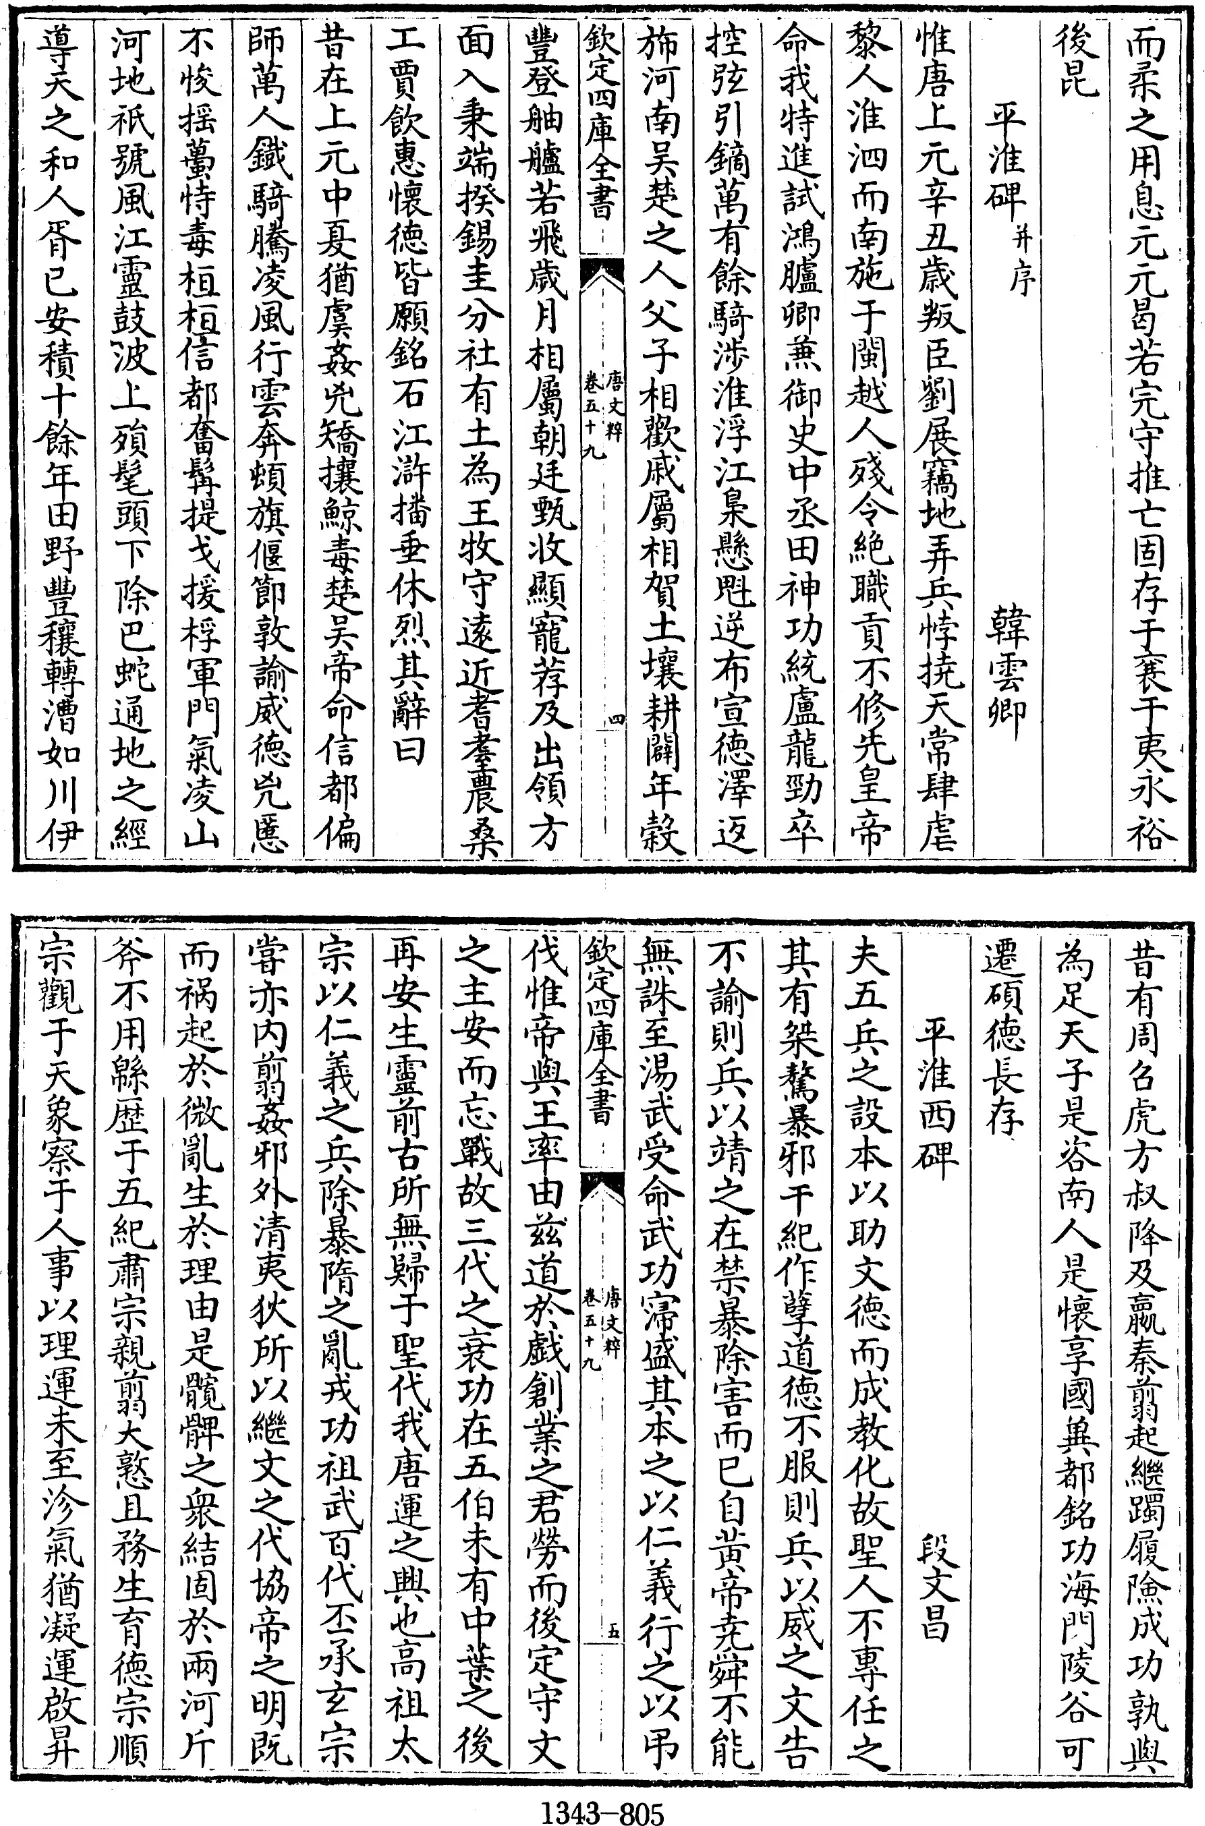 而柔之用息元元曷若完守推亡固存于襄干夷永裕
後昆
平淮碑并序　韓雲卿
惟唐上元辛丑歲叛臣劉展竊地弄兵悖撓天常肆虐
黎人淮泗而南施于閩越人殘令絶職貢不修先皇帝
命我特進試鴻臚卿兼御史中丞田神功統盧龍勁卒
控弦引鏑萬有餘騎涉淮浮江梟懸魁逆布宣德澤返
斾河南吴楚之人父子相歡戚屬相賀土壤耕闢年穀
欽定四庫全書
唐文粹
卷五十九
四
豐登舳艫若飛歲月相屬朝廷甄收顯寵荐及出領方
面入秉端揆錫圭分社有土為王牧守遠近耆耋農桑
工賈飲惠懷德皆願銘石江滸播垂休烈其辭曰
昔在上元中夏猶虞姦兇矯攘鯨毒楚吴帝命信都偏
師萬人鐵騎騰凌風行雲奔頓旗偃節敦諭威德兇慝
不悛摇蠆恃毒桓桓信都奮髯提戈援桴軍門氣凌山
河地祇號風江靈鼓波上殞髦頭下除巴蛇通地之經
導天之和人胥已安積十餘年田野豐穰轉漕如川伊
昔有周召虎方叔降及嬴秦翦起繼躅履險成功孰與
為足天子是咨南人是懷享國冀都銘功海門陵谷可
遷碩德長存
平淮西碑　段文昌
夫五兵之設本以助文德而成教化故聖人不專任之
其有桀驁暴邪干紀作孽道德不服則兵以威之文告
不諭則兵以靖之在禁暴除害而已自黄帝堯舜不能
無誅至湯武受命武功寖盛其本之以仁義行之以弔
欽定四庫全書
唐文粹
卷五十九
五
伐惟帝與王率由兹道於戲創業之君勞而後定守文
之主安而忘戰故三代之衰功在五伯未有中葉之後
再安生靈前古所無歸于聖代我唐運之興也高祖太
宗以仁義之兵除暴隋之亂戎功祖武百代丕承玄宗
嘗亦内翦姦邪外清夷狄所以繼文之代協帝之明既
而禍起於微亂生於理由是髖髀之衆結固於兩河斤
斧不用緜歴于五紀肅宗親翦大憝且務生育德宗順
宗觀于天象察于人事以理運未至沴氣猶凝運啟昇
1343-805